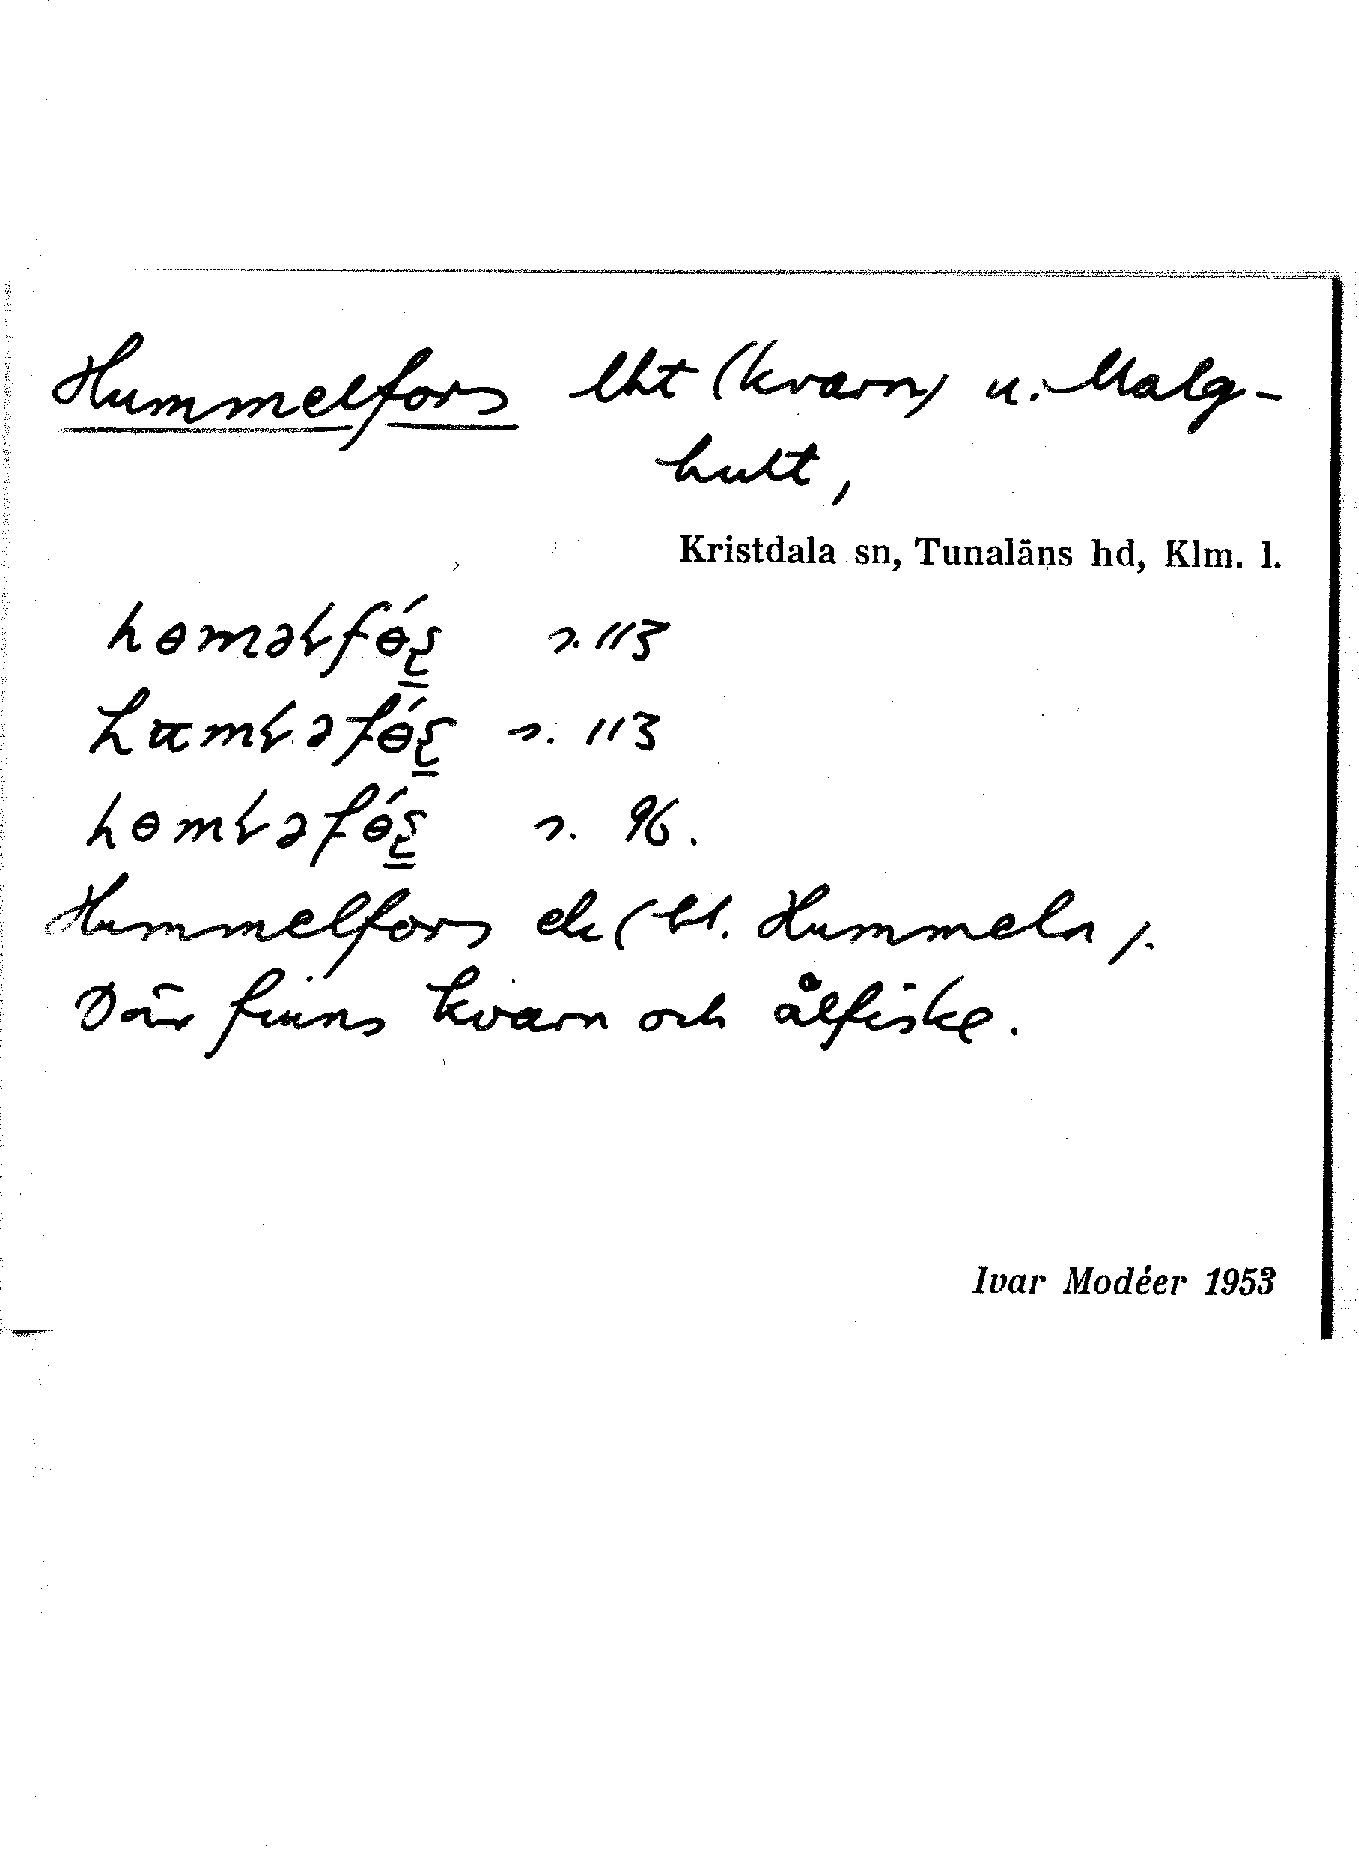 Hummelfors lht (kvarn) u. Malg-
hult,
Kristdala sn, Tunaläns hd, Klm. l.
s. 113
s. 113
s. 96.
Hummelfors ek (bl. Hummeln).
Där finns kvarn och ålfiske.
Ivar Modéer 1953